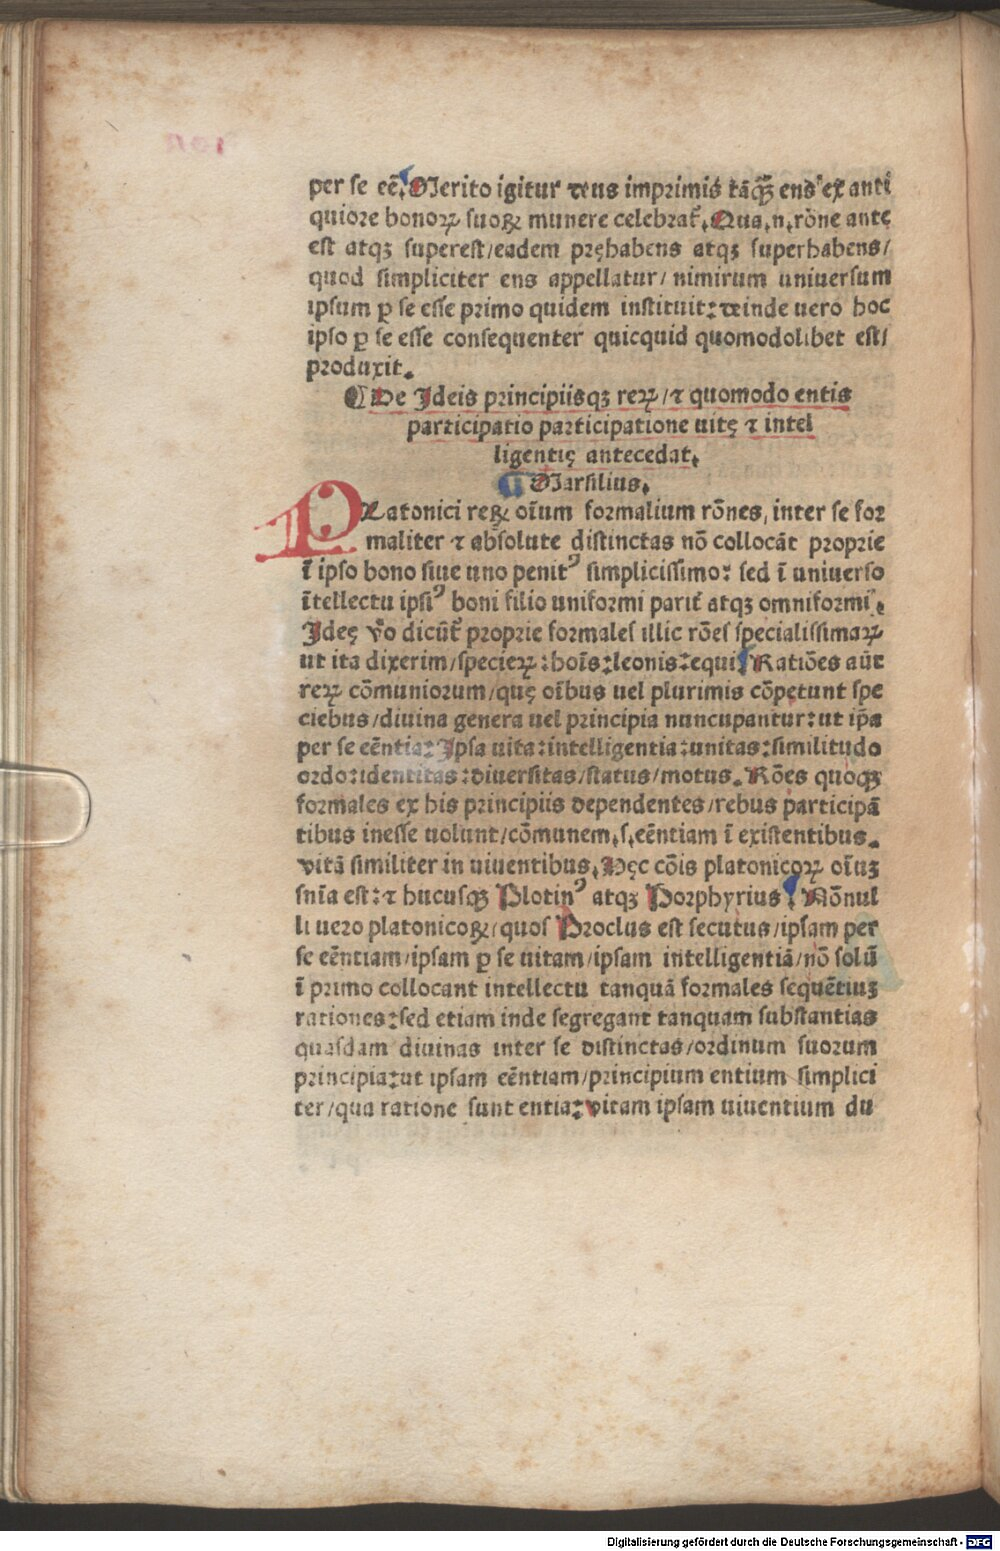 per se eē. Merito igitur deus imprimis tāqȝ̄ ens ex anti
quiore bonoꝝ suoꝝ munere celebrat᷑. Qua .n. rōne ante
est atqȝ superest/eadem pręhabens atqȝ superhabens/
quod simpliciter ens appellatur/ nimirum uniuersum
ipsum ꝑ se esse primo quidem instituit: deinde uero hoc
ipso ꝑ se esse consequenter quicquid quomodolibet est/
produxit.
¶ De Ideis principiisqȝ reꝝ/⁊ quomodo entis
participatio participatione uitę ⁊ intel
ligentię antecedat.
Marsilius.
PLatonici reꝝ oīum formalium rōnes, inter se for
maliter ⁊ absolute distinctas nō collocāt proprie
ī ipso bono siue uno penitꝰ simplicissimo: sed ī uniuerso
ītellectu ipsiꝰ boni filio uniformi parit᷑ atqȝ omniformi.
Ideę v̊o dicūt᷑ proprie formales illic rōes specialissimaꝝ
ut ita dixerim/specieꝝ: hoīs: leonis: equi. Ratiōes aūt
reꝝ cōmuniorum/quę oībus uel plurimis cōpetunt spe
ciebus/diuina genera uel principia nuncupantur: ut ip̄a
per se eēntia: Ipsa uita: intelligentia: unitas: similitudo
ordo: identitas: diuersitas/status/motus. Rōes quoqȝ
formales ex his principiis dependentes/rebus participā
tibus inesse uolunt/cōmunem .s. eēntiam ī existentibus.
vitā similiter in uiuentibus. Hęc cōis platonicoꝝ oīuȝ
snīa est: ⁊ hucusqȝ Plotinꝰ atqȝ Porphyrius. Nōnul
li uero platonicoꝝ/quos Proclus est secutus/ipsam per
se eēntiam/ipsam ꝑ se uitam/ipsam intelligentiā/nō solū
ī primo collocant intellectu tanquā formales sequētiuȝ
rationes: sed etiam inde segregant tanquam substantias
quasdam diuinas inter se distinctas/ordinum suorum
principia: ut ipsam eēntiam/principium entium simplici
ter/qua ratione sunt entia: vitam ipsam uiuentium du
Digitalisierung gefördert durch die Deutsche Forschungsgemeinschaft - DFG